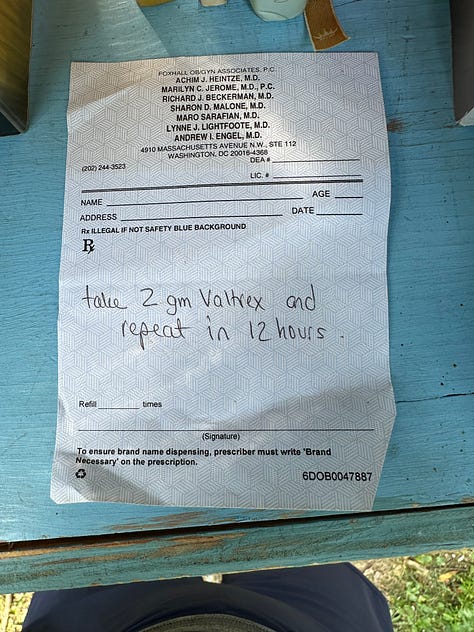 FOXHALL OB/GYN ASSOCIATES, P.C.
ACHIM J. HEINTZE, M.D.
MARILYN C. JEROME, M.D., P.C.
RICHARD J. BECKERMAN, M.D.
SHARON D. MALONE, M.D.
MARO SARAFIAN, M.D.
LYNNE J. LIGHTFOOTE, M.D.
ANDREW I. ENGEL, M.D.
4910 MASSACHUSETTS AVENUE N.W., STE 112
WASHINGTON, DC 20016-4368
(202) 244-3523
DEA #
LIC. #
NAME AGE
ADDRESS DATE
Rx ILLEGAL IF NOT SAFETY BLUE BACKGROUND
Rx
take 2 gm Valtrex and
repeat in 12 hours.
Refill times
(Signature)
To ensure brand name dispensing, prescriber must write 'Brand
Necessary' on the prescription.
6DOB0047887